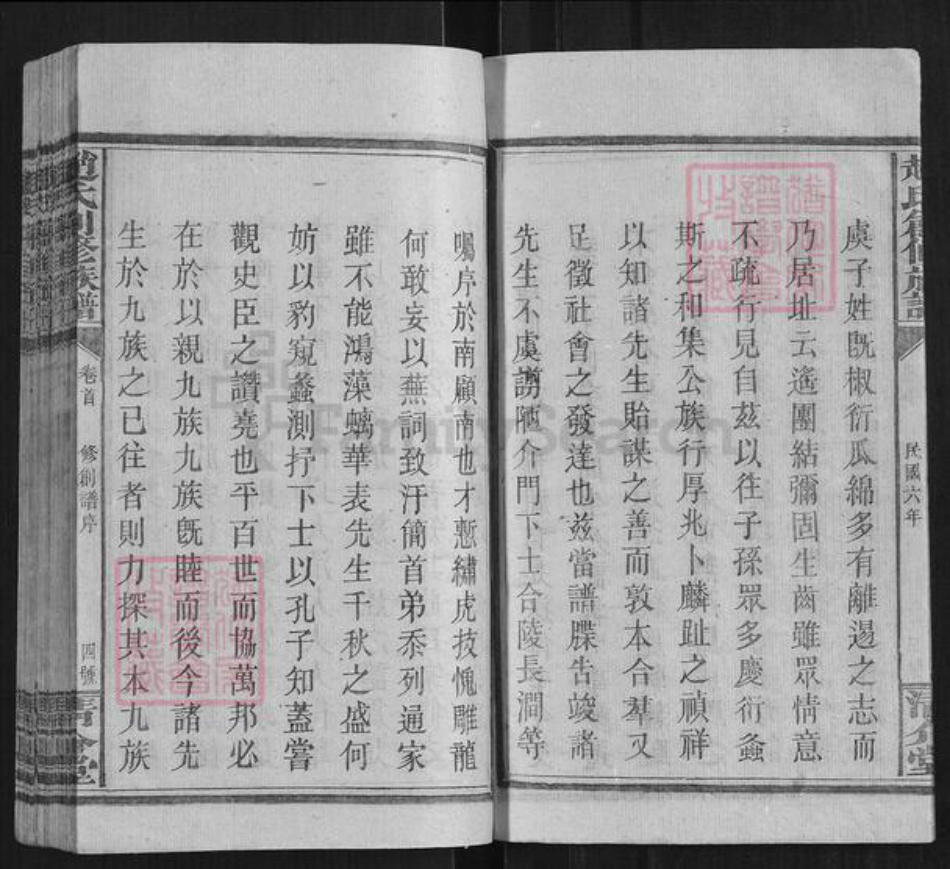 趙氏創修族譜
民國六年
清介堂
虞子姓既椒衍瓜綿多有離逷之志而
乃居址云遙團結彌固生齒雖眾情意
不疏行見自茲以往子孫眾多慶衍螽
斯之和集公族行厚兆卜麟趾之禎祥
以知諸先生貽謀之善而敦本合羣又
足徵社會之發達也茲當譜牒告竣諸
先生不虞謭陋介門下士合陵長澗等
囑序於南顧南也才慙繡虎技愧雕龍
何敢妄以蕪詞致汙簡首弟忝列通家
雖不能鴻藻螭華表先生千秋之盛何
妨以豹窺蠡測抒下士以孔子知蓋嘗
觀史臣之讚堯也平百世而協萬邦必
在於以親九族九族既睦而後今諸先
生於九族之已往者則力探其本九族
趙氏創修族譜
卷首
修創譜序
四號
清介堂
FamilySearch